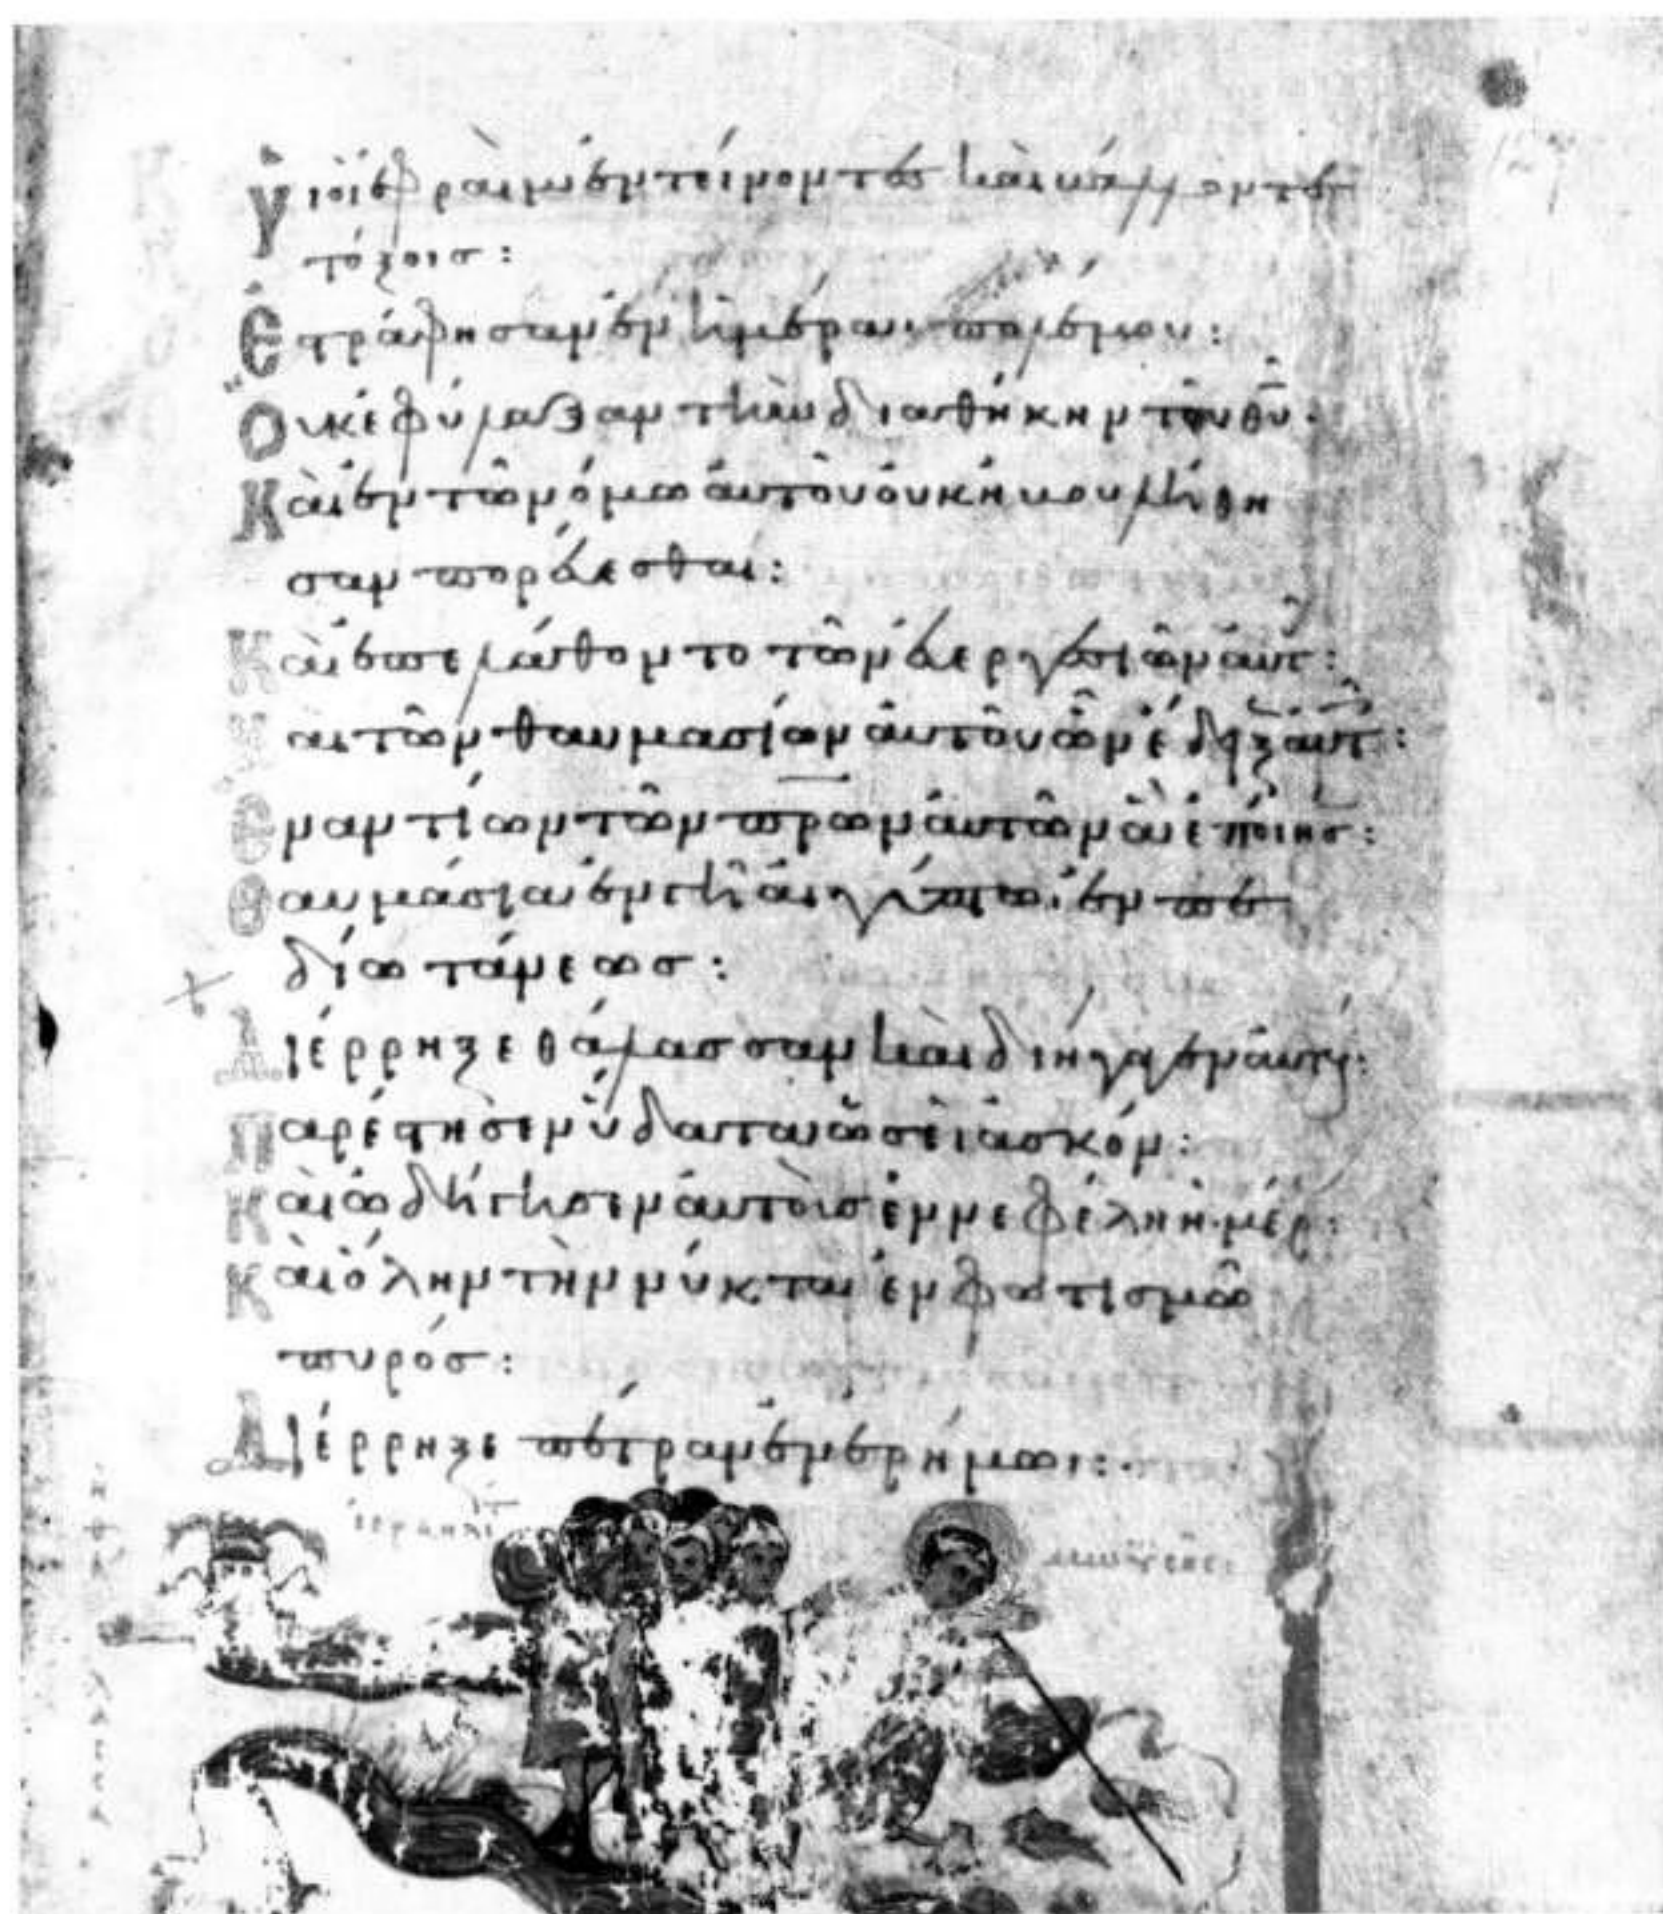 Υἱοὶ ἐφραὶμ ἐντείνοντες καὶ βάλλοντες
τόξοις:
Ἐστράφησαν ἐν ἡμέραι πολέμου:
Οὐκ ἐφύλαξαν τὴν διαθήκην τοῦ θῦ.
Καὶ ἐν τῶ νόμω αὐτοῦ οὐκ ἠβουλήθη
σαν πορεύεσθαι:
Καὶ ἐπελάθοντο τῶν εὐεργεσιῶν αὐτ:
Καὶ τῶν θαυμασίων αὐτοῦ ὧν ἔδειξ αὐτ:
Εναντίον τῶν πρων αὐτῶν ἃ ἐποίησ:
Θαυμάσια ἐν γῆ αἰγύπτωι ἐν πε
δίω τάνεωσ:
Διέρρηξε θάλασσαν καὶ διήγαγεν αὐτούς:
Παρέστησεν ὕδατα ὡσεὶ ἀσκόν:
Καὶ ὡδήγησεν αὐτοὺσ ἐν νεφέλη ἡμέρ:
Καὶ ὅλην τὴν νύκτα ἐν φωτισμῶ
πυρόσ:
Διέρρηξε πέτραν ἐν ἐρήμωι:
μωϋσῆς: